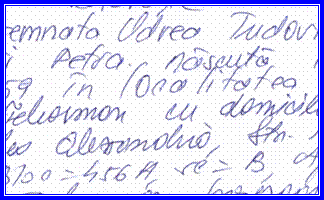 emnata Udrea Tudor
Petra născută
59 în localitatea
Teleorman cu domicil
Alexandria, Str.
bloc = 456A, sc = B, A